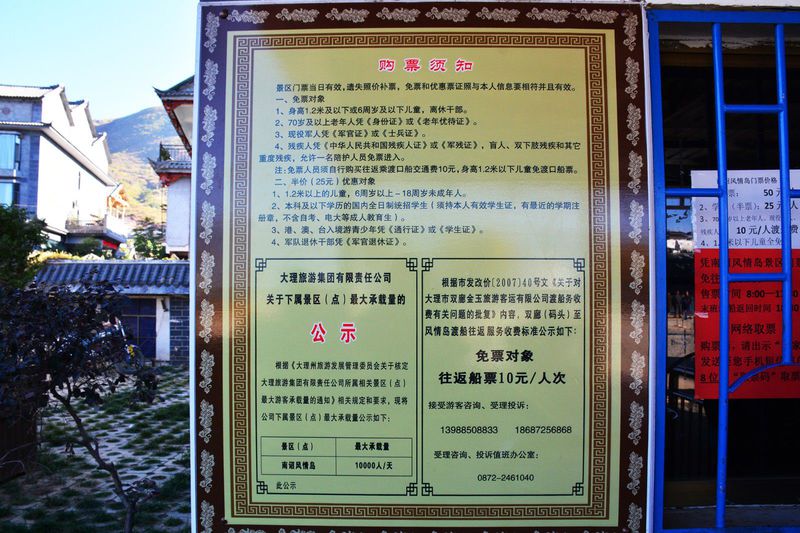 购票须知
景区门票当日有效，遗失照价补票，免票和优惠票证照与本人信息要相符并且有效。
一、免票对象
1、身高1.2米及以下或6周岁及以下儿童，离休干部。
2、70岁及以上老年人凭《身份证》或《老年优待证》。
3、现役军人凭《军官证》或《士兵证》。
4、残疾人凭《中华人民共和国残疾人证》或《军残证》，盲人、双下肢残疾和其它
重度残疾，允许一名陪护人员免票进入。
注：免票人员须自行购买往返乘渡口船交通费10元，身高1.2米及以下儿童免渡口船票。
二、半价（25元）优惠对象
1、1.2米以上的儿童，6周岁以上－18周岁未成年人。
2、本科及以下学历的国内全日制统招学生（须持本人有效学生证，有最近的学期注
册章，不含自考、电大等成人教育生）。
3、港、澳、台入境游青少年凭《通行证》或《学生证》。
4、军队退休干部凭《军官退休证》。
大理旅游集团有限责任公司
关于下属景区（点）最大承载量的
公示
根据《大理州旅游发展管理委员会关于核定
大理旅游集团有限责任公司所属相关景区（点）
最大游客承载量的通知》相关规定和要求，现将
公司下属景区（点）最大承载量公示如下：
景区（点） 最大承载量
南诏风情岛 10000人/天
此公示
根据市发改价[2007]40号文《关于对
大理市双廊金玉旅游客运有限公司渡船务收
费有关问题的批复》内容，双廊（码头）至
风情岛渡船往返服务收费标准公示如下：
免票对象
往返船票10元/人次
接受游客咨询、受理投诉：
13988508833 18687256868
受理咨询、投诉值班办公室：
0872-2461040
风情岛门票价格
票： 50元
2、学 （半票）：25元/人
3、70岁及以上老年人、现役
残疾人 10元/人渡费
4、1.2米以下儿童全免
凭南诏风情岛景区门
免费往
售票时间 8:00
末班船返回时间
网络取票
购票后，请出示
发送至您手机短信
8位 码”取票